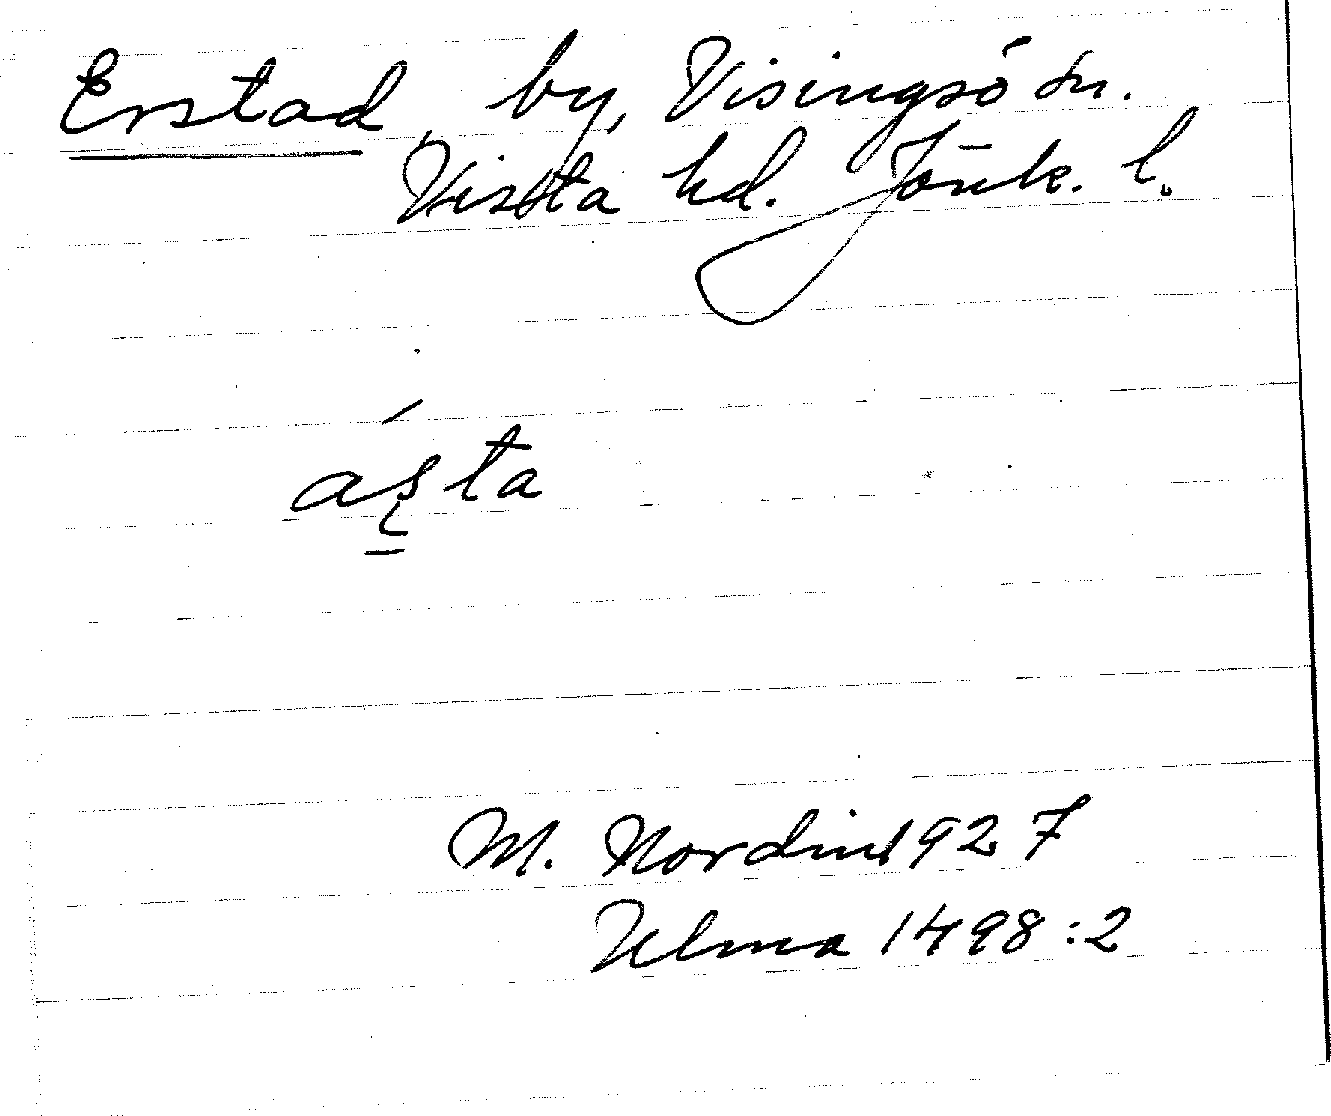 Erstad by, Visingsö sn.
Vista hd. Jönk. l.
M. Nordin 1927
Ulma 1498:2